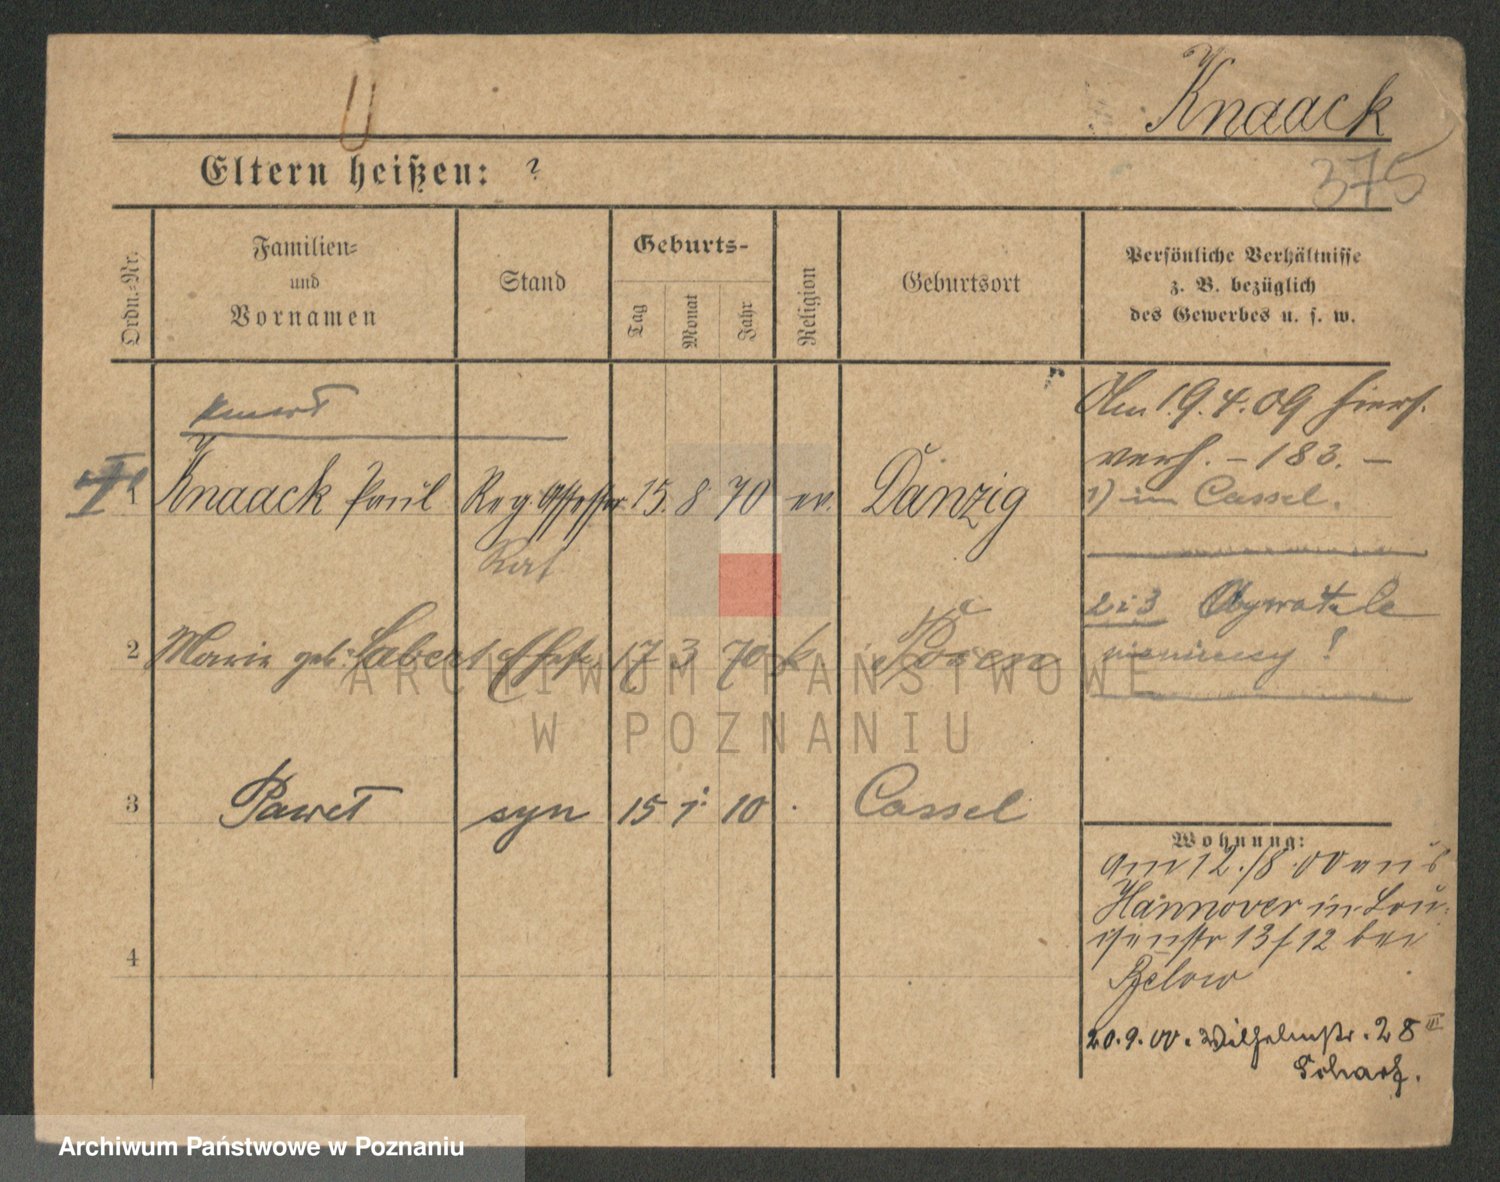 Knaack
375
Eltern heißen: ?
Ordn.-Nr.
Familien-
und
Vornamen
Stand
Geburts-
Tag
Monat
Jahr
Religion
Geburtsort
Persönliche Verhältnisse
z. B. bezüglich
des Gewerbes u. s. w.
zmarł
Am 19.4.09 hiers.
verh. – 183. –
1 Knaack Paul Reg. Assessor 15. 8 70 ev. Danzig
1) in Cassel.
Rat
2 i 3 Obywatele
niemieccy!
2 Marie geb. Ehefr 17 3 70 k Posen
3 Paweł syn 15 1. 10 . Cassel
4
Wohnung:
am 12./8 00 aus
Hannover in Lou-
isenstr 13 f 12 bei
Below
20.9.00. Wilhelmstr. 28 III
Scharf.
ARCHIWUM PAŃSTWOWE
W POZNANIU
Archiwum Państwowe w Poznaniu